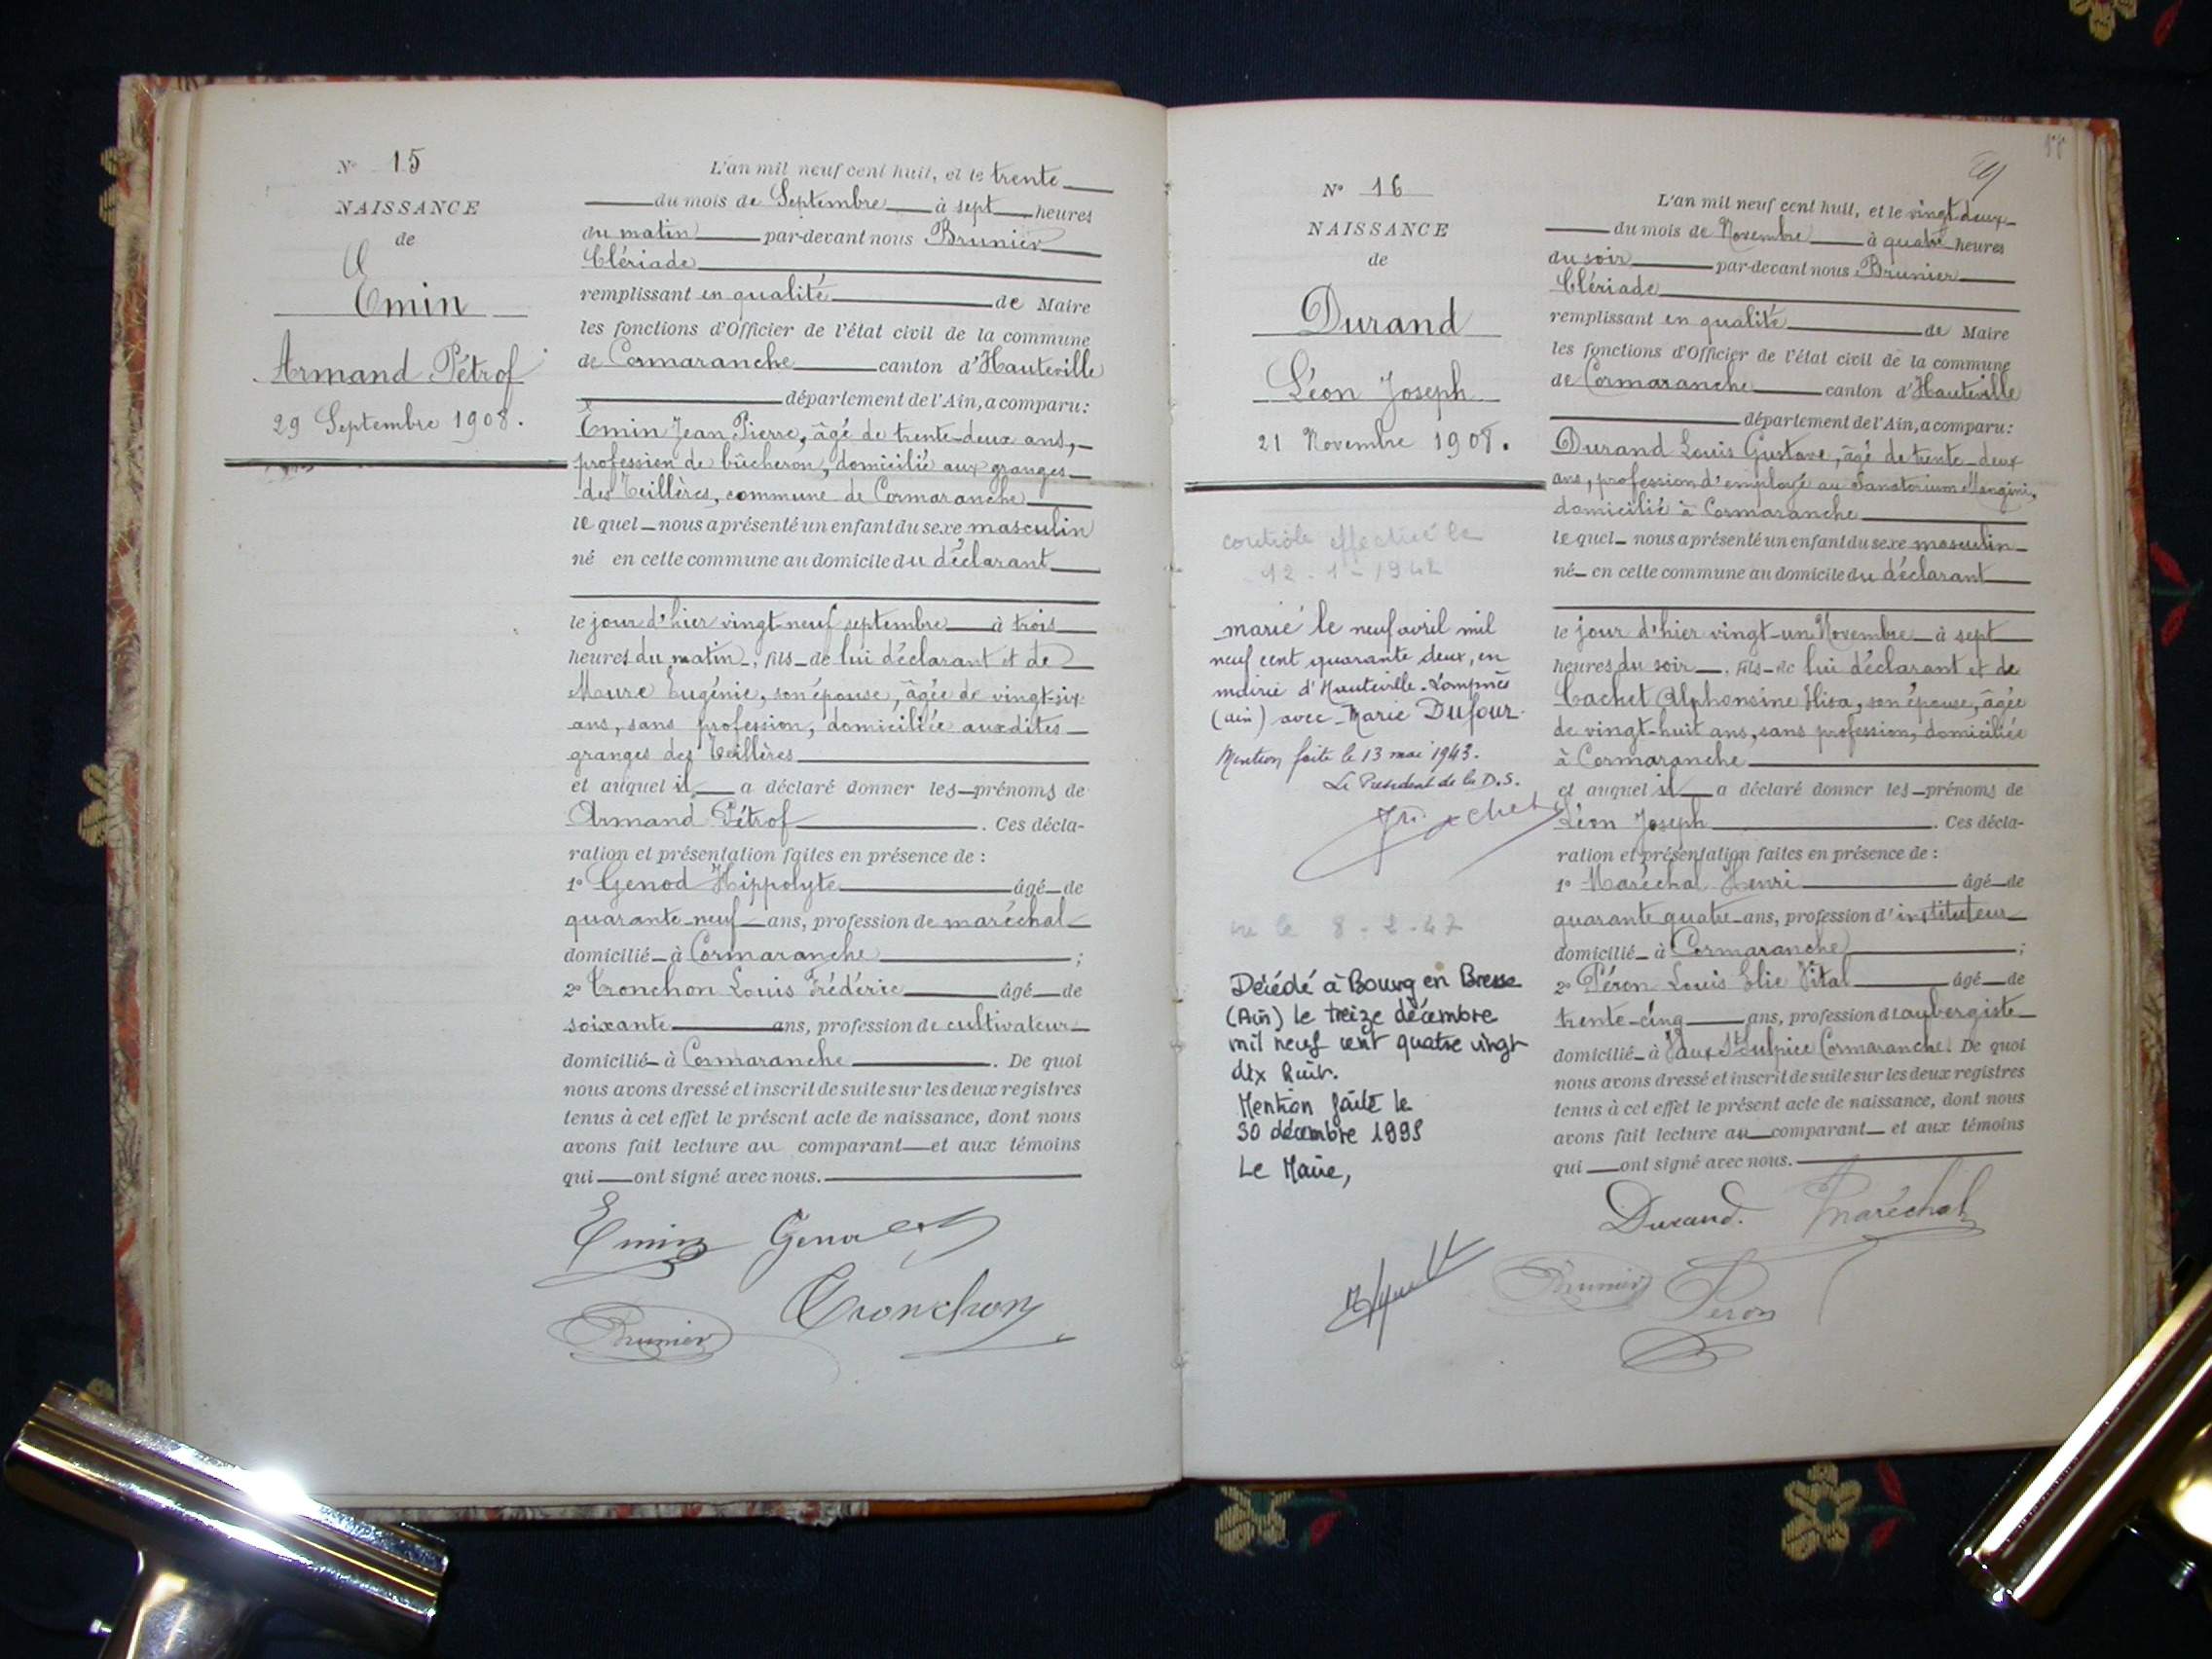 N° 15
NAISSANCE
de
Emin
Armand Pétrof
29 Septembre 1908.
L'an mil neuf cent huit, et le trente
du mois de Septembre à sept heures
du matin par-devant nous Brunier
Clériade
remplissant en qualité de Maire
les fonctions d'Officier de l'état civil de la commune
de Cormaranche canton d'Hauteville
département de l'Ain, a comparu:
Emin Jean Pierre, âgé de trente-deux ans,
profession de bûcheron, domicilié aux granges
des Teillères, commune de Cormaranche
lequel nous a présenté un enfant du sexe masculin
né en cette commune au domicile du déclarant
le jour d'hier vingt-neuf septembre à trois
heures du matin, fils de lui déclarant et de
Mure Eugénie, son épouse, âgée de vingt-six
ans, sans profession, domiciliée auxdites
granges des Teillères
et auquel il a déclaré donner les prénoms de
Armand Pétrof. Ces décla-
ration et présentation faites en présence de :
1° Genod Hippolyte âgé de
quarante-neuf ans, profession de maréchal
domicilié à Cormaranche ;
2° Tronchon Louis Frédéric âgé de
soixante ans, profession de cultivateur
domicilié à Cormaranche. De quoi
nous avons dressé et inscrit de suite sur les deux registres
tenus à cet effet le présent acte de naissance, dont nous
avons fait lecture au comparant et aux témoins
qui ont signé avec nous.
Emin Genod
Tronchon
Brunier
N° 16
NAISSANCE
de
Durand
Léon Joseph
21 Novembre 1908.
contrôle effectué le
12-1-1942
marié le neuf avril mil
neuf cent quarante deux, en
mairie d'Hauteville-Lompnès
(ain) avec Marie Dufour.
Mention faite le 13 mai 1943.
Le Président de la D.S.
vu le 8-2-47
Décédé à Bourg en Bresse
(Ain) le treize décembre
mil neuf cent quatre vingt
dix huit.
Mention faite le
30 décembre 1998
Le Maire,
L'an mil neuf cent huit, et le vingt-deux
du mois de Novembre à quatre heures
du soir par-devant nous Brunier
Clériade
remplissant en qualité de Maire
les fonctions d'Officier de l'état civil de la commune
de Cormaranche canton d'Hauteville
département de l'Ain, a comparu:
Durand Louis Gustave, âgé de trente-deux
ans, profession d'employé au Sanatorium Mangini,
domicilié à Cormaranche
lequel nous a présenté un enfant du sexe masculin
né en cette commune au domicile du déclarant
le jour d'hier vingt-un Novembre à sept
heures du soir, fils de lui déclarant et de
Cachet Alphonsine Elisa, son épouse, âgée
de vingt-huit ans, sans profession, domiciliée
à Cormaranche
et auquel il a déclaré donner les prénoms de
Léon Joseph. Ces décla-
ration et présentation faites en présence de :
1° Maréchal Henri âgé de
quarante quatre ans, profession d'instituteur
domicilié à Cormaranche ;
2° Péron Louis Elie Vital âgé de
trente-cinq ans, profession d'aubergiste
domicilié à Vaux St Sulpice Cormaranche. De quoi
nous avons dressé et inscrit de suite sur les deux registres
tenus à cet effet le présent acte de naissance, dont nous
avons fait lecture au comparant et aux témoins
qui ont signé avec nous.
Durand. Maréchal
Brunier Péron